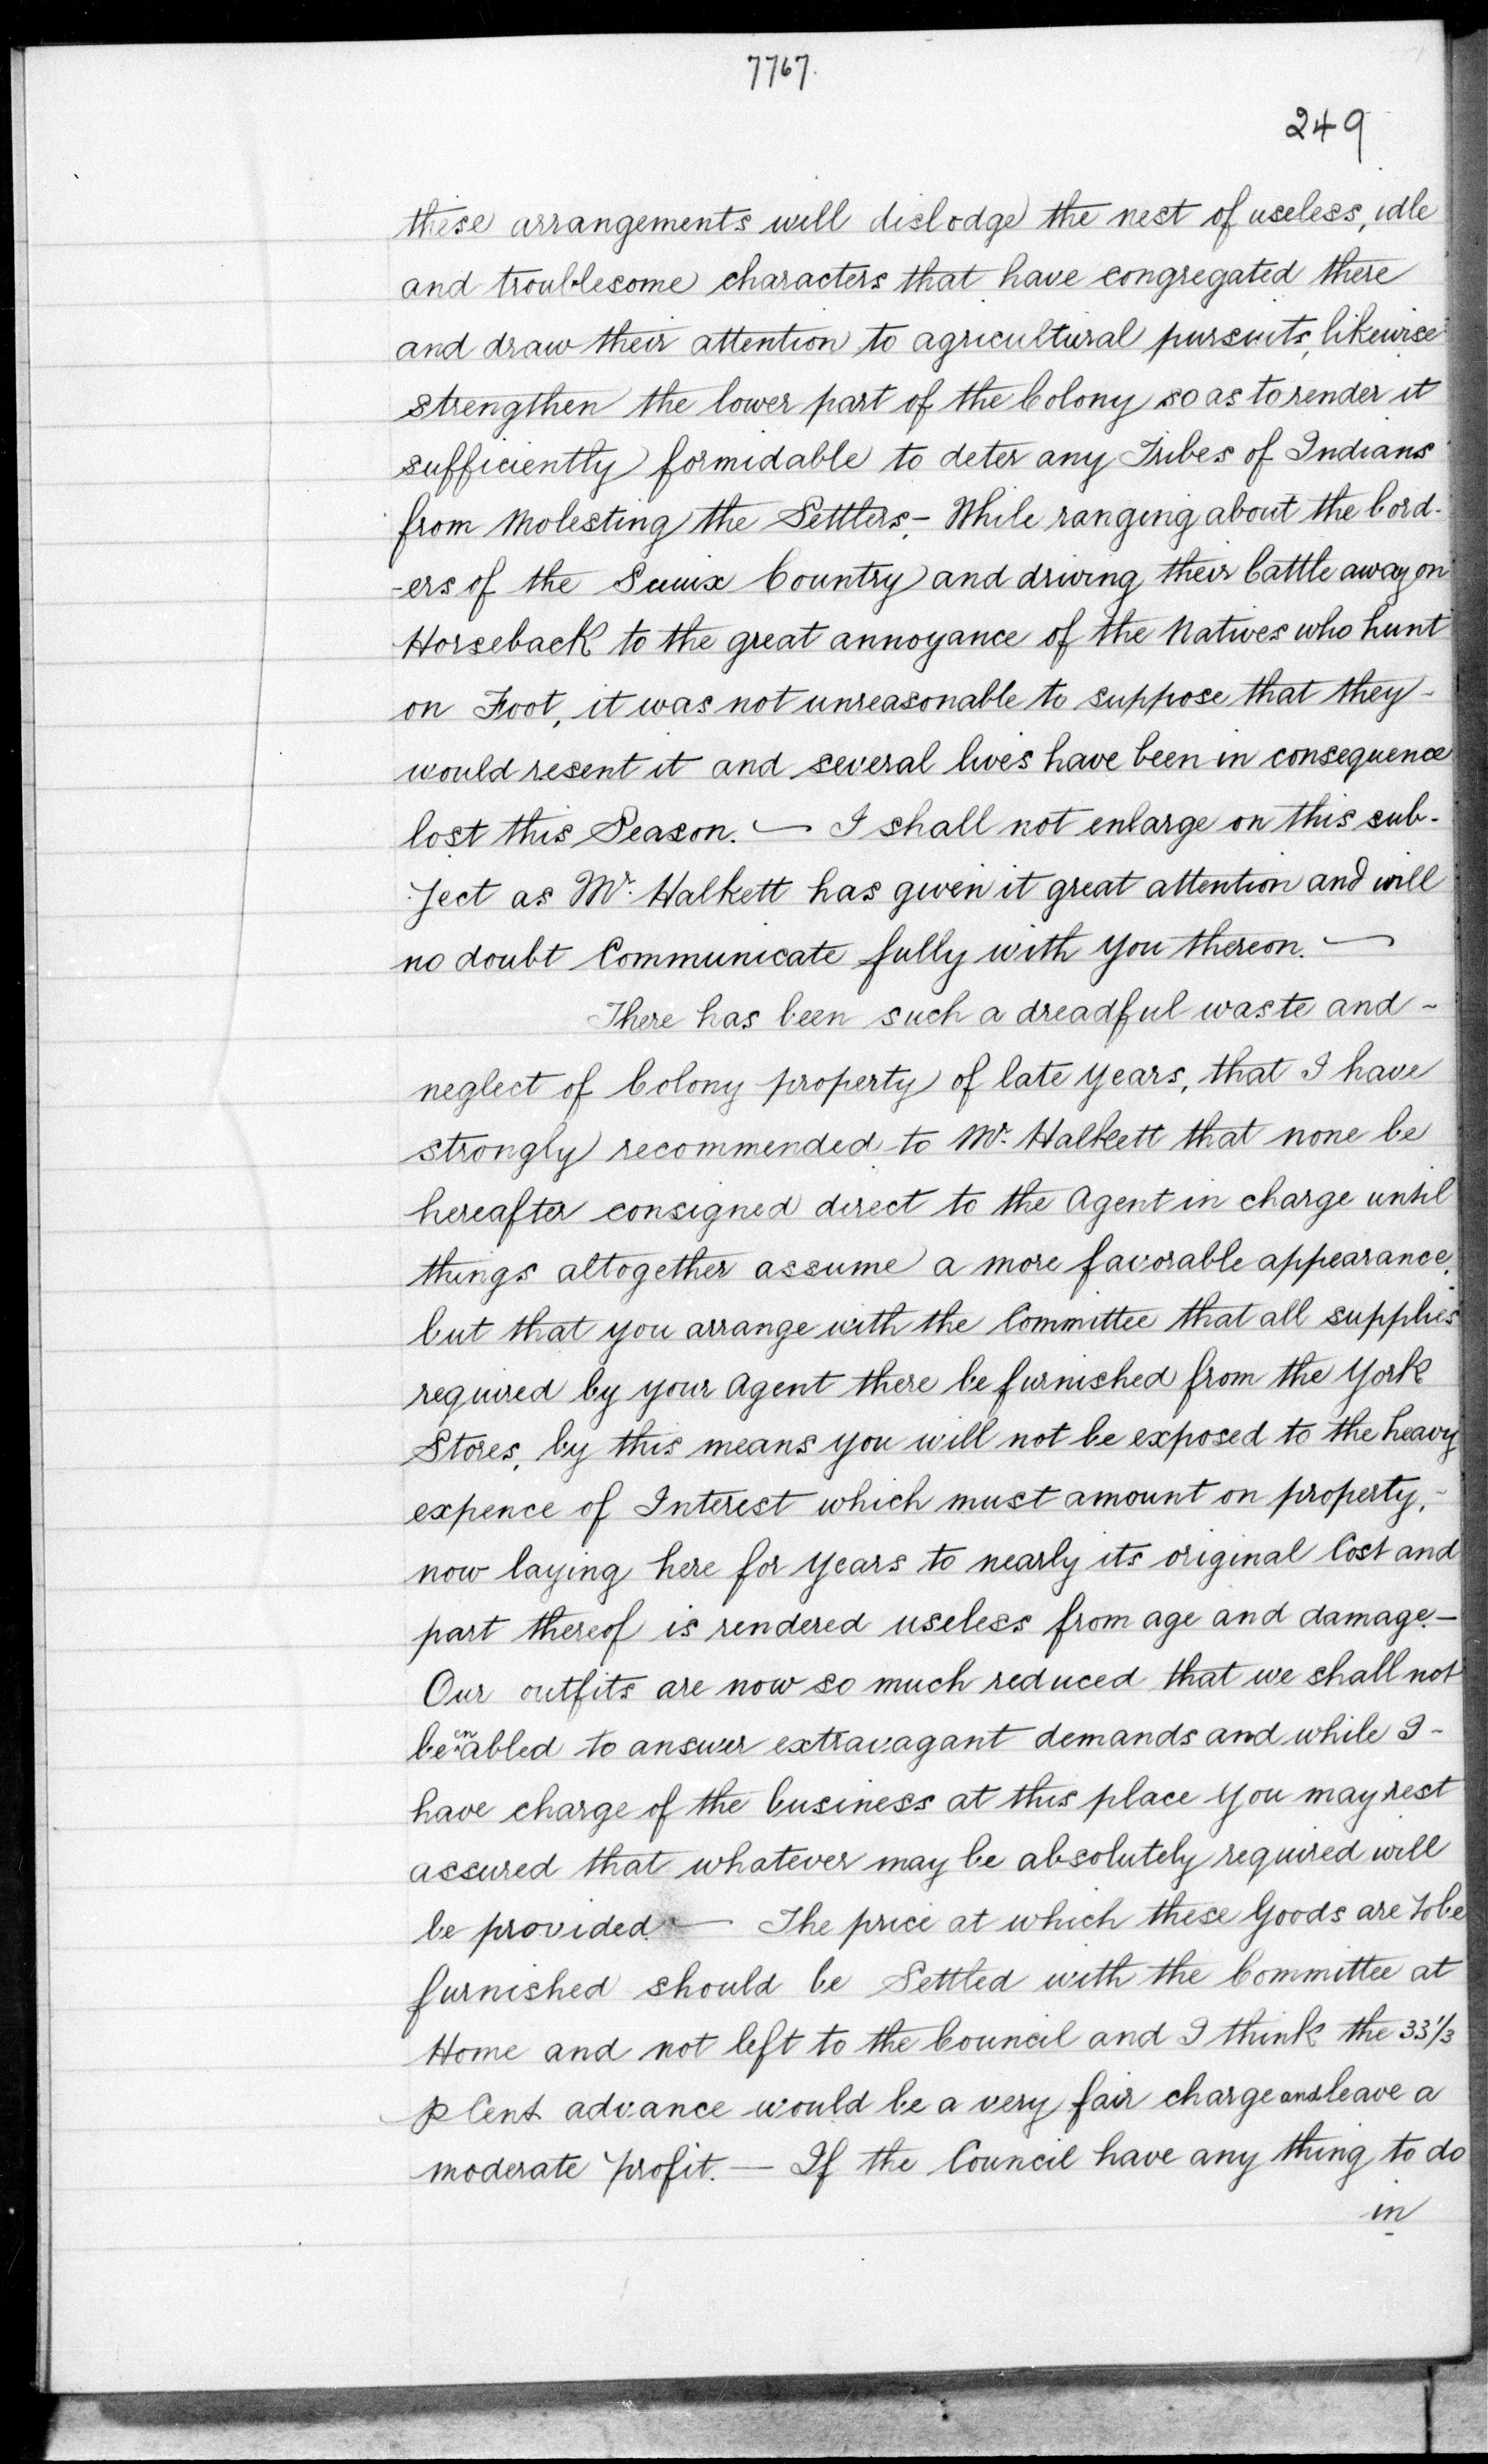 7767.
249
these arrangements will dislodge the nest of useless, idle
and troublesome characters that have congregated there
and draw their attention to agricultural pursuits, likewise
strengthen the lower part of the Colony so as to render it
sufficiently formidable to deter any Tribes of Indians
from Molesting the Settlers,- While ranging about the bord-
-ers of the Seuix Country and driving their Cattle away on
Horseback to the great annoyance of the Natives who hunt
on Foot, it was not unreasonable to suppose that they -
would resent it and several lives have been in consequence
lost this Season. — I shall not enlarge on this sub-
-ject as Mr. Halkett has given it great attention and will
no doubt Communicate fully with you thereon. —
There has been such a dreadful waste and -
neglect of Colony property of late years, that I have
strongly recommended to Mr. Halkett that none be
hereafter consigned direct to the Agent in charge until
things altogether assume a more favorable appearance,
but that you arrange with the Committee that all supplies
required by your Agent there be furnished from the York
Stores, by this means you will not be exposed to the heavy
expence of Interest which must amount on property, -
now laying here for years to nearly its original Cost and
part thereof is rendered useless from age and damage. —
Our outfits are now so much reduced that we shall not
be enabled to answer extravagant demands and while I -
have charge of the business at this place you may rest
assured that whatever may be absolutely required will
be provided. — The price at which these Goods are to be
furnished should be Settled with the Committee at
Home and not left to the Council and I think the 33 1/3
p Cent advance would be a very fair charge and leave a
moderate profit. — If the Council have any thing to do
in